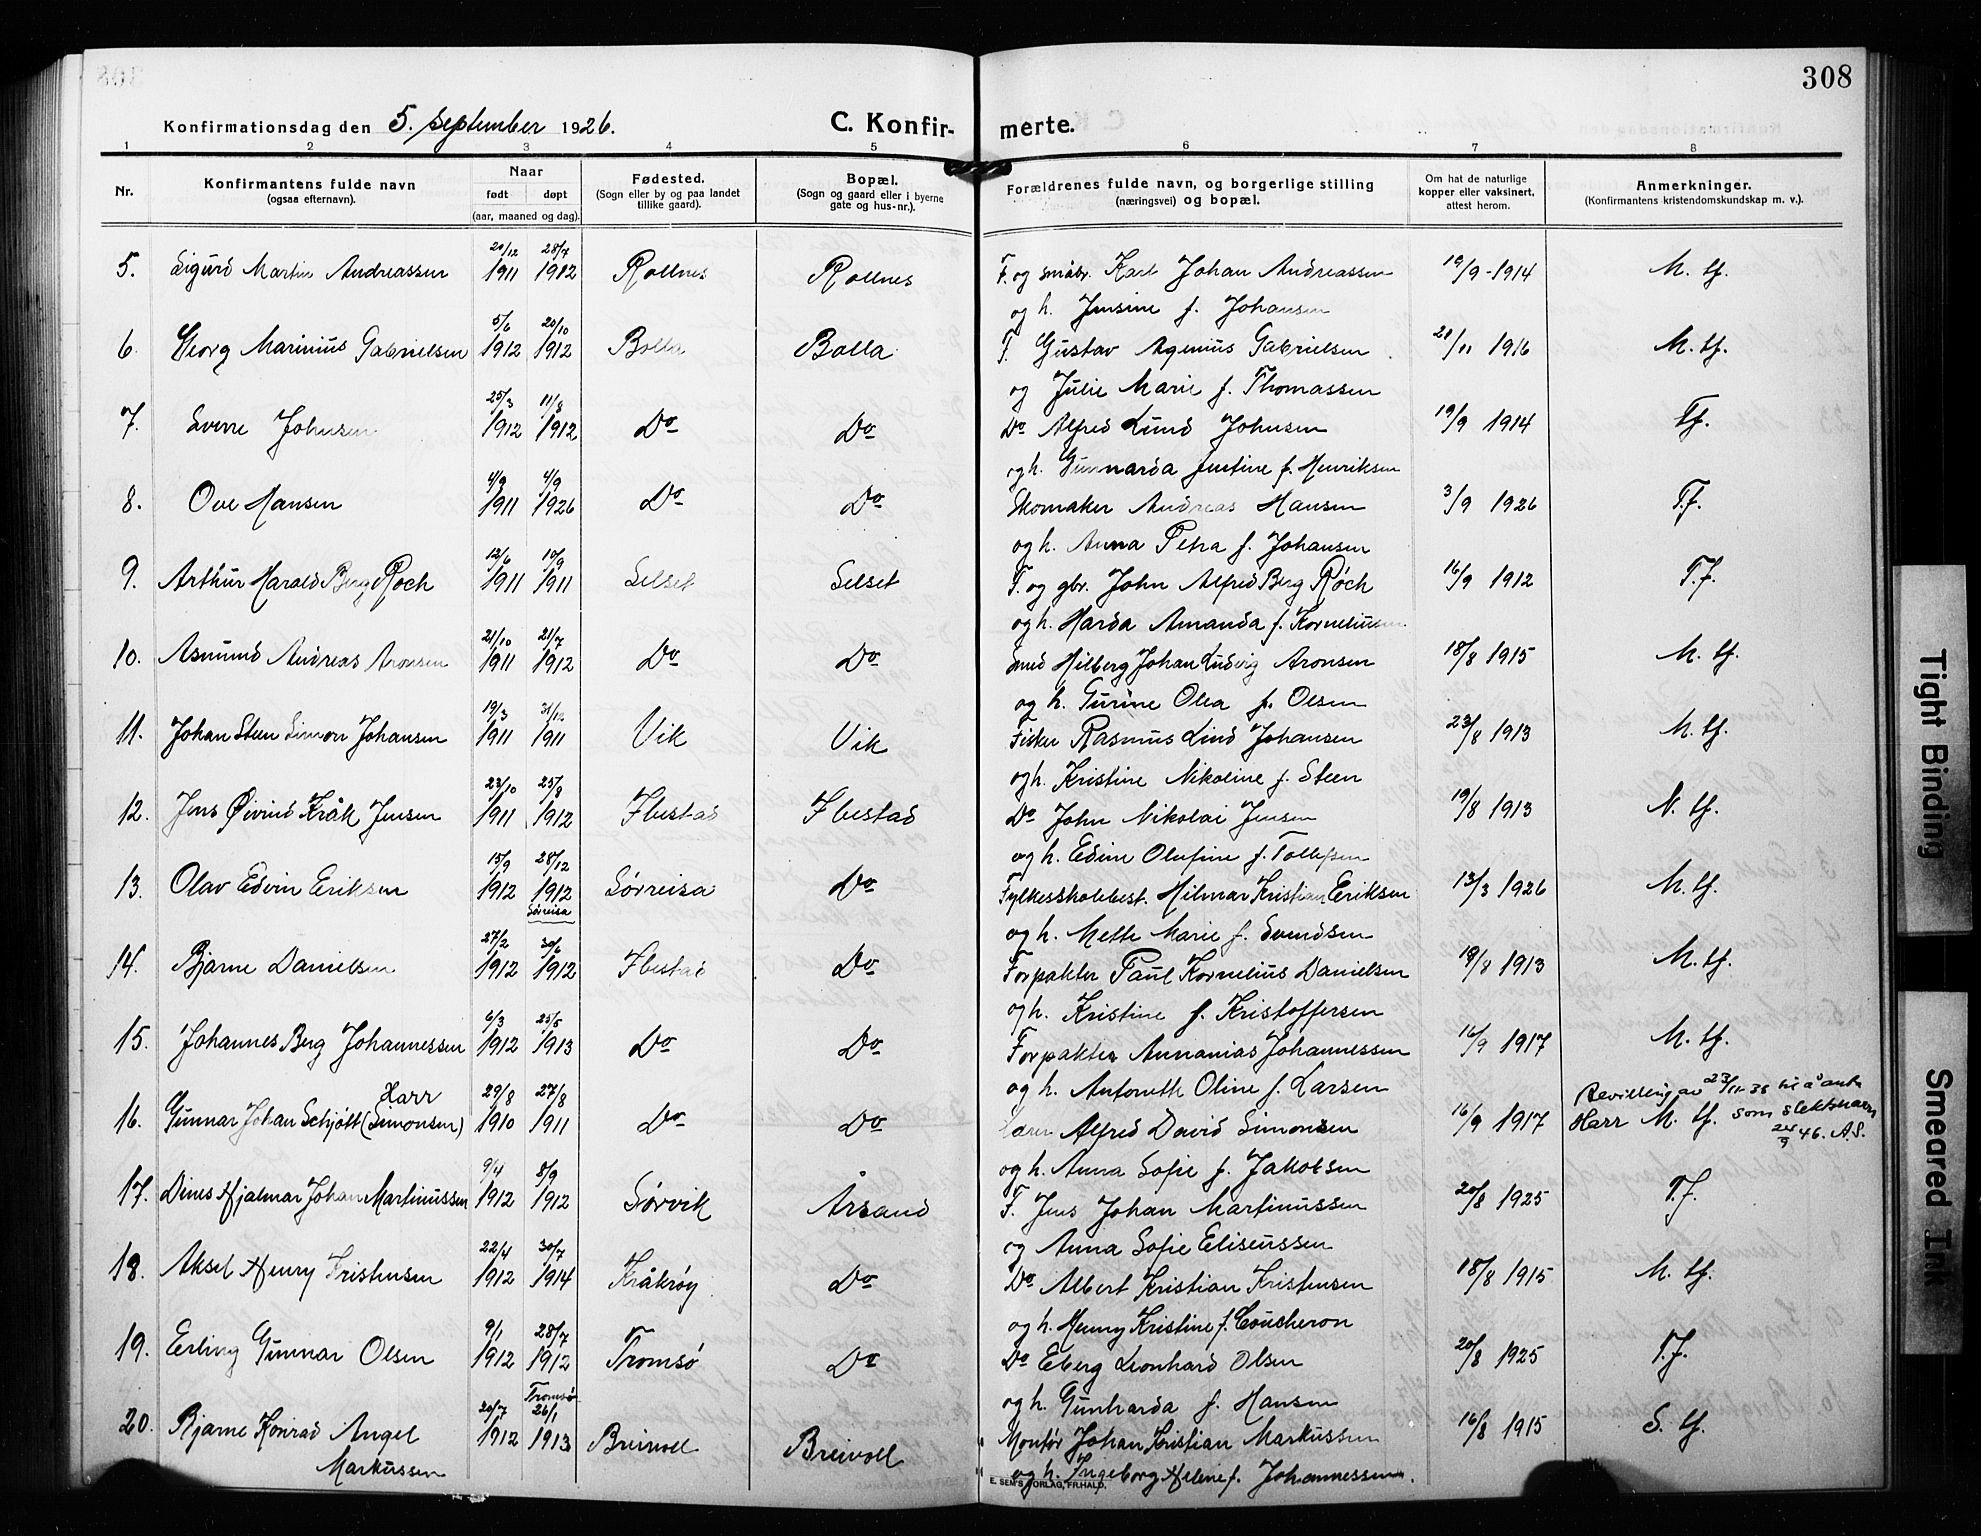 308
Konfirmationsdag den 5. september 1926. C. Konfir- merte.
1 2 3 4 5 6 7 8
Nr. Konfirmantens fulde navn (ogsaa efternavn). Naar født døpt (aar, maaned og dag). Fødested. (Sogn eller by og paa landet tillike gaard). Bopæl. (Sogn og gaard eller i byerne gate og hus-nr.). Forældrenes fulde navn, og borgerlige stilling (næringsvei) og bopæl. Om hat de naturlige kopper eller vaksinert, attest herom. Anmerkninger. (Konfirmantens kristendomskundskap m. v.).
5. Sigurd Martin Andreassen 20/12 1911 28/7 1912 Rollnes Rollnes F. og småbr. Karl Johan Andreassen 19/9 - 1914 M. tf.
og h. Jensine f. Johansen
6. Georg Marinius Gabrielsen 5/6 1912 20/10 1912 Bolla Bolla F. Gustav Agenius Gabrielsen 21/11 1916 M. tf.
og Julie Marie f. Thomassen
7. Sverre Johnsen 25/3 1912 11/8 1912 Do Do Do Alfred Lund Johnsen 19/9 1914 Tf.
og h. Gunnarda Justine f. Henriksen
8. Ove Hansen 4/9 1911 4/9 1926 Do Do Skomaker Andreas Hansen 3/9 1926 T.f.
og h. Anna Petra f. Johansen
9. Arthur Harald Berg Røch 12/6 1911 10/9 1911 Selset Selset F. og gbr. John Alfred Berg Røch 16/9 1912 T.f.
og h. Harda Amanda f. Korneliussen
10. Asmund Andreas Aronsen 21/10 1911 21/7 1912 Do Do Smed Hilberg Johan Ludvig Aronsen 18/8 1915 M. tf.
og h. Gurine Olea f. Olsen
11. Johan Steen Simon Johansen 19/3 1911 31/12 1911 Vik Vik Fisker Rasmus Lind Johansen 23/8 1913 M. tf.
og h. Kristine Nikoline f. Steen
12. Jens Øivind Kråk Jensen 23/10 1911 25/8 1912 Ibestad Ibestad Do John Nikolai Jensen 19/8 1913 N. tf.
og h. Edine Olufine f. Tollefsen
13. Olav Edvin Eriksen 15/9 1912 28/12 1912 Sørreisa Sørreisa Do Fylkesskolebest. Hilmar Kristian Eriksen 13/3 1926 M. tf.
og h. Mette Marie f. Svendsen
14. Bjarne Danielsen 27/2 1912 30/6 1912 Ibestad Do Forpakter Paul Kornelius Danielsen 19/8 1913 M. tf.
og h. Kristine f. Kristoffersen
15. Johannes Berg Johannessen 6/3 1912 25/5 1913 Do Do Forpakter Annanias Johannessen 16/9 1917 M. tf.
og h. Antoneth Oline f. Larsen
16. Gunnar Johan Schjøtt (Simonsen) Harr 29/8 1910 27/8 1911 Do Do Lærer Alfred David Simonsen 16/9 1917 Bevilling av 23/11-38 til å anta Harr M. tf. som slektsnavn 24/9 46. A.S.
og h. Anna Sofie f. Jakobsen
17. Dines Hjalmar Johan Martinussen 9/4 1912 8/9 1912 Sørvik Årsand F. Jens Johan Martinussen 20/8 1925 T.f.
og Anna Sofie Eliseussen
18. Aksel Henry Kristensen 22/4 1912 30/7 1914 Kråkrøy Do Do Albert Kristian Kristensen 18/8 1915 M. tf.
og h. Henny Kristine f. Coucheron
19. Erling Gunnar Olsen 9/1 1912 28/7 1912 Tromsø Tromsø Do Do Eberg Leonhard Olsen 20/8 1925 T.f.
og h. Gunharda f. Hansen
20. Bjarne Konrad Angel Markussen 20/7 1912 26/1 1913 Breivoll Breivoll Montør Johan Kristian Markussen 16/8 1915 S. tf.
og h. Ingeborg Helene f. Johannessen.
E. SEM'S FORLAG, FR.HALD.
Tight Binding
Smeared Ink